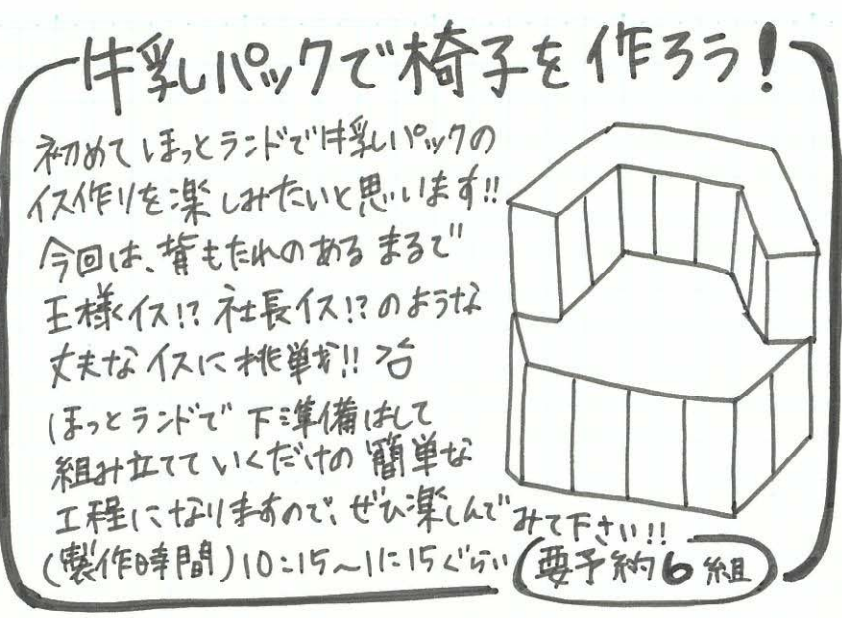 牛乳パックで椅子を作ろう!
初めてほっとランドで牛乳パックの
イス作りを楽しみたいと思います!!
今回は、背もたれのあるまるで
王様イス!?社長イス!?のような
丈夫なイスに挑戦!!
ほっとランドで下準備はして
組み立てていくだけの簡単な
工程になりますので、ぜひ楽しんでみて下さい!!
(製作時間)10:15~11:15ぐらい
要予約6組